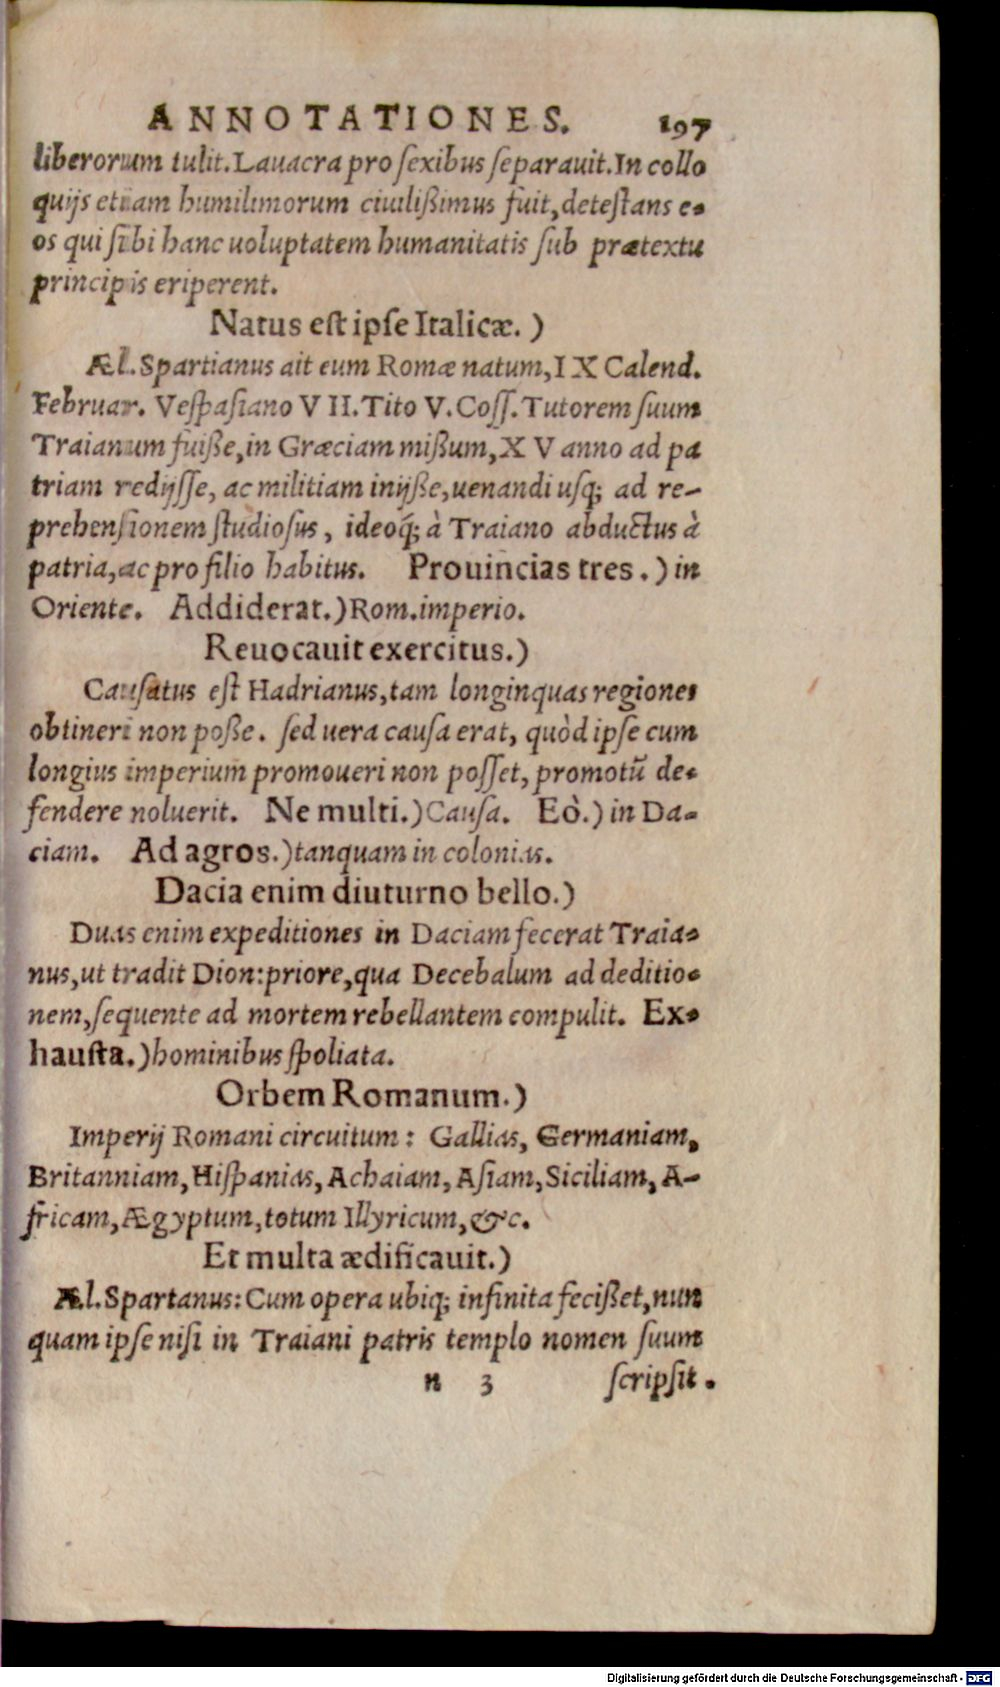 ANNOTATIONES. 197
liberorum tulit. Lauacra pro ſexibus ſeparauit. In collo
quijs etiam humilimorum ciuilißimus fuit, deteſtans e-
os qui ſibi hanc uoluptatem humanitatis ſub prætextu
principis eriperent.
Natus eſt ipſe Italicæ.)
Æl. Spartianus ait eum Romæ natum, IX Calend.
Februar. Veſpaſiano VII. Tito V. Coſſ. Tutorem ſuum
Traianum fuiße, in Græciam mißum, XV anno ad pa
triam redijſſe, ac militiam inijße, uenandi uſq; ad re-
prehenſionem ſtudioſus, ideoq́; à Traiano abductus à
patria, ac pro filio habitus. Prouincias tres.) in
Oriente. Addiderat.) Rom. imperio.
Reuocauit exercitus.)
Cauſatus eſt Hadrianus, tam longinquas regiones
obtineri non poße. ſed uera cauſa erat, quòd ipſe cum
longius imperium promoueri non poſſet, promotũ de-
fendere noluerit. Ne multi.) Cauſa. Eò.) in Da-
ciam. Ad agros.) tanquam in colonias.
Dacia enim diuturno bello.)
Duas enim expeditiones in Daciam fecerat Traia-
nus, ut tradit Dion: priore, qua Decebalum ad deditio-
nem, ſequente ad mortem rebellantem compulit. Ex-
hauſta.) hominibus ſpoliata.
Orbem Romanum.)
Imperij Romani circuitum: Gallias, Germaniam,
Britanniam, Hiſpanias, Achaiam, Aſiam, Siciliam, A-
fricam, Ægyptum, totum Illyricum, &c.
Et multa ædificauit.)
Æl. Spartanus: Cum opera ubiq; infinita fecißet, nun
quam ipſe niſi in Traiani patris templo nomen ſuum
n 3 ſcripſit.
Digitalisierung gefördert durch die Deutsche Forschungsgemeinschaft - DFG